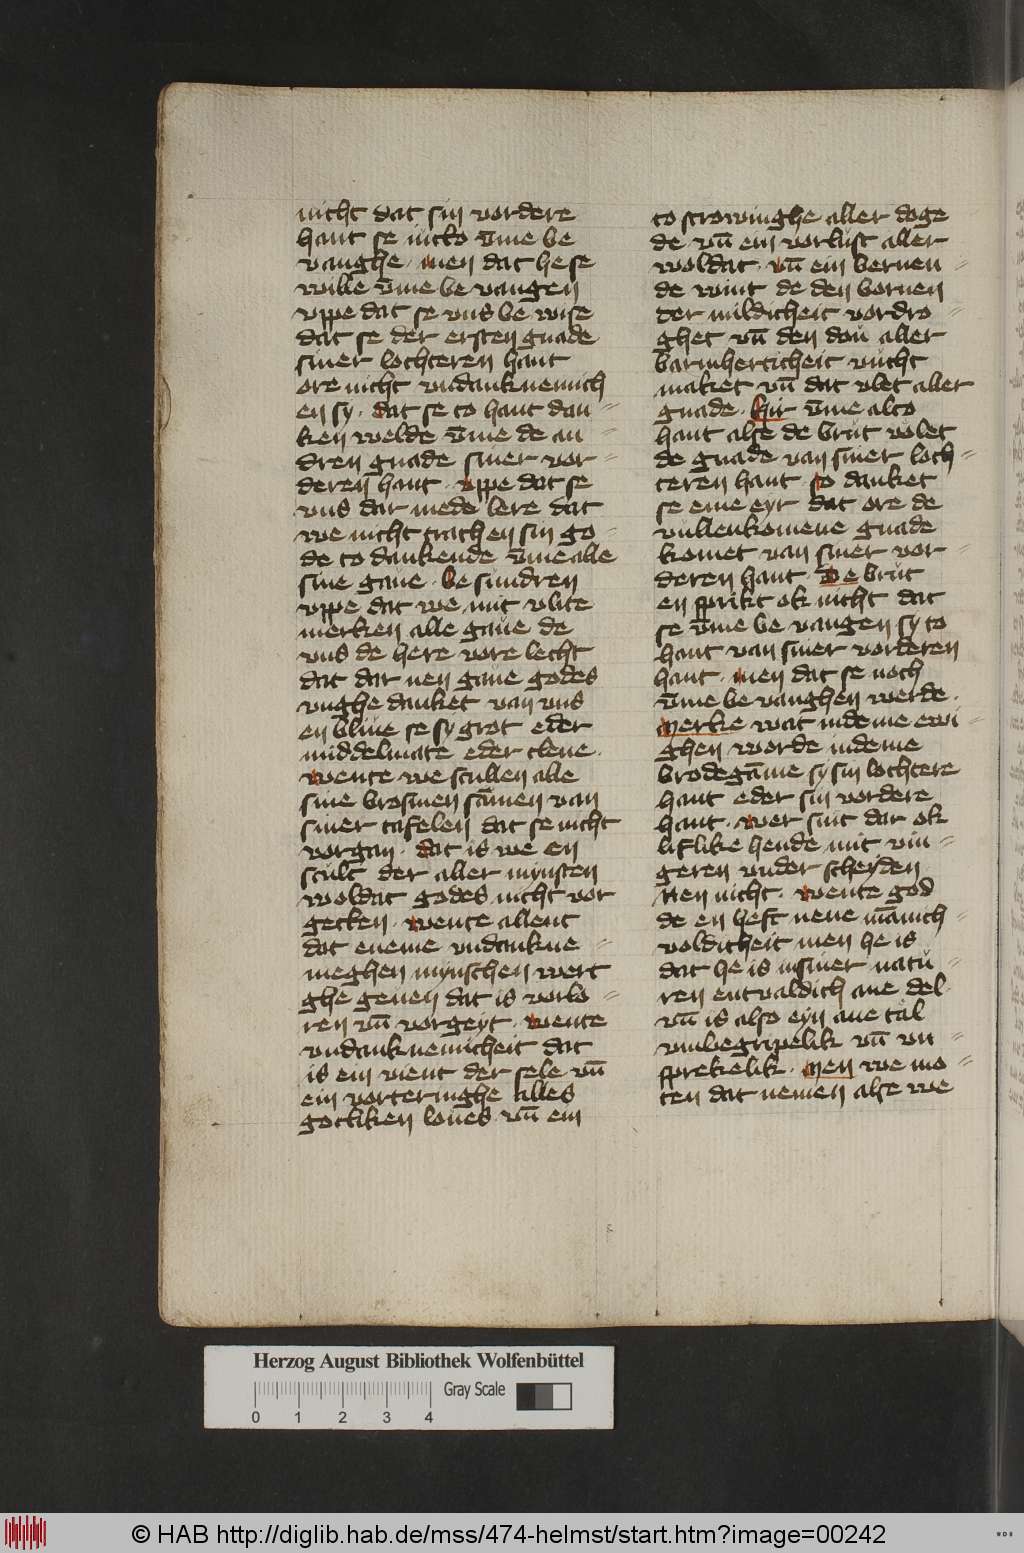 nicht dat sin vordere
hant se nicto v̄me be
vanghe · men dat he se
wille v̄me be vangen
vppe dat se vns be wise
dat se der ersten gnade
siner lochteren hant
ore nicht vndanknemich
en sy · dat se to hant dan
ken welde v̄me de an
dren gnade siner vor
deren hant · vppe dat se
vns dar mede lere dat
we nicht trach en sin go
de to dankende v̄me alle
sine gaue · be sundren
vppe dat we mit vlite
merken alle gaue de
vns de here vore lecht
dat dar nen gaue godes
vnghe danket van vns
en bliue se sy grot eder
middelmate eder clene ·
wente we scullen alle
sine brosmen sāmen van
siner tafelen dat se nicht
vorgan · dat is we en
scult der aller mynsten
woldat godes nicht vor
getten · wente allent
dat eneme vndankne
meghen mynschen wert
ghe geuen dat is vorlo
ren vn̄ vorgeyt · wente
vndanknemicheit dat
is ein vient der sele vn̄
ein vorteringhe alles
gotliken loues · vn̄ ein
to strowinghe aller doge
de · vn̄ ein vorlust aller
woldat · vn̄ ein bernen
de wint de den bornen
der mildicheit vordro
ghet vn̄ den dou aller
barmherticheit vucht
maket vn̄ dat vlet aller
gnade · hir v̄me alto
hant alse de brut volet
de gnade van siner loch
teren hant · so danket
se eme eyr dat ore de
vullenkomene gnade
komet van siner vor
deren hant · De brut
en sprikt ok nicht dat
se v̄me be vangen sy to
hant van siner vorderen
hant · men dat se noch
v̄me be vanghen werde ·
Merke wat in deme ewi
ghen worde in deme
brodegāme sy sin lochtere
hant eder sin vordere
hant · wer sint dar ok
liflike hende mit vin
geren vnder scheyden
Nen nicht · wente god
de en heft nene mānich
voldicheit men he is
dat he is in siner natu
ren entvaldich ane del
vn̄ is also eyn ane tal
vmbegripelik vn̄ vn
sprekelik · Men we mo
ten dat nemen alse we
Herzog August Bibliothek Wolfenbüttel
0 1 2 3 4 Gray Scale
© HAB http://diglib.hab.de/mss/474-helmst/start.htm?image=00242